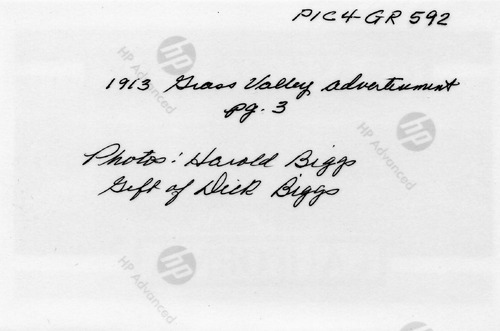 PIC4-GR 592
1913 Grass Valley advertisment
pg. 3
Photos: Harold Biggs
Gift of Dick Biggs
hp
HP Advanced
hp
HP Advanced
hp
HP Advanced